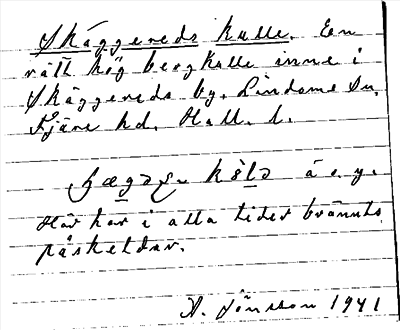 Skäggereds kulle. En
rätt hög bergkulle inne i
Skäggereds by. Lindome sn,
Fjäre hd. Hall. l.
Här har i alla tider brännts
påskeldar.
A. Jönsson 1941